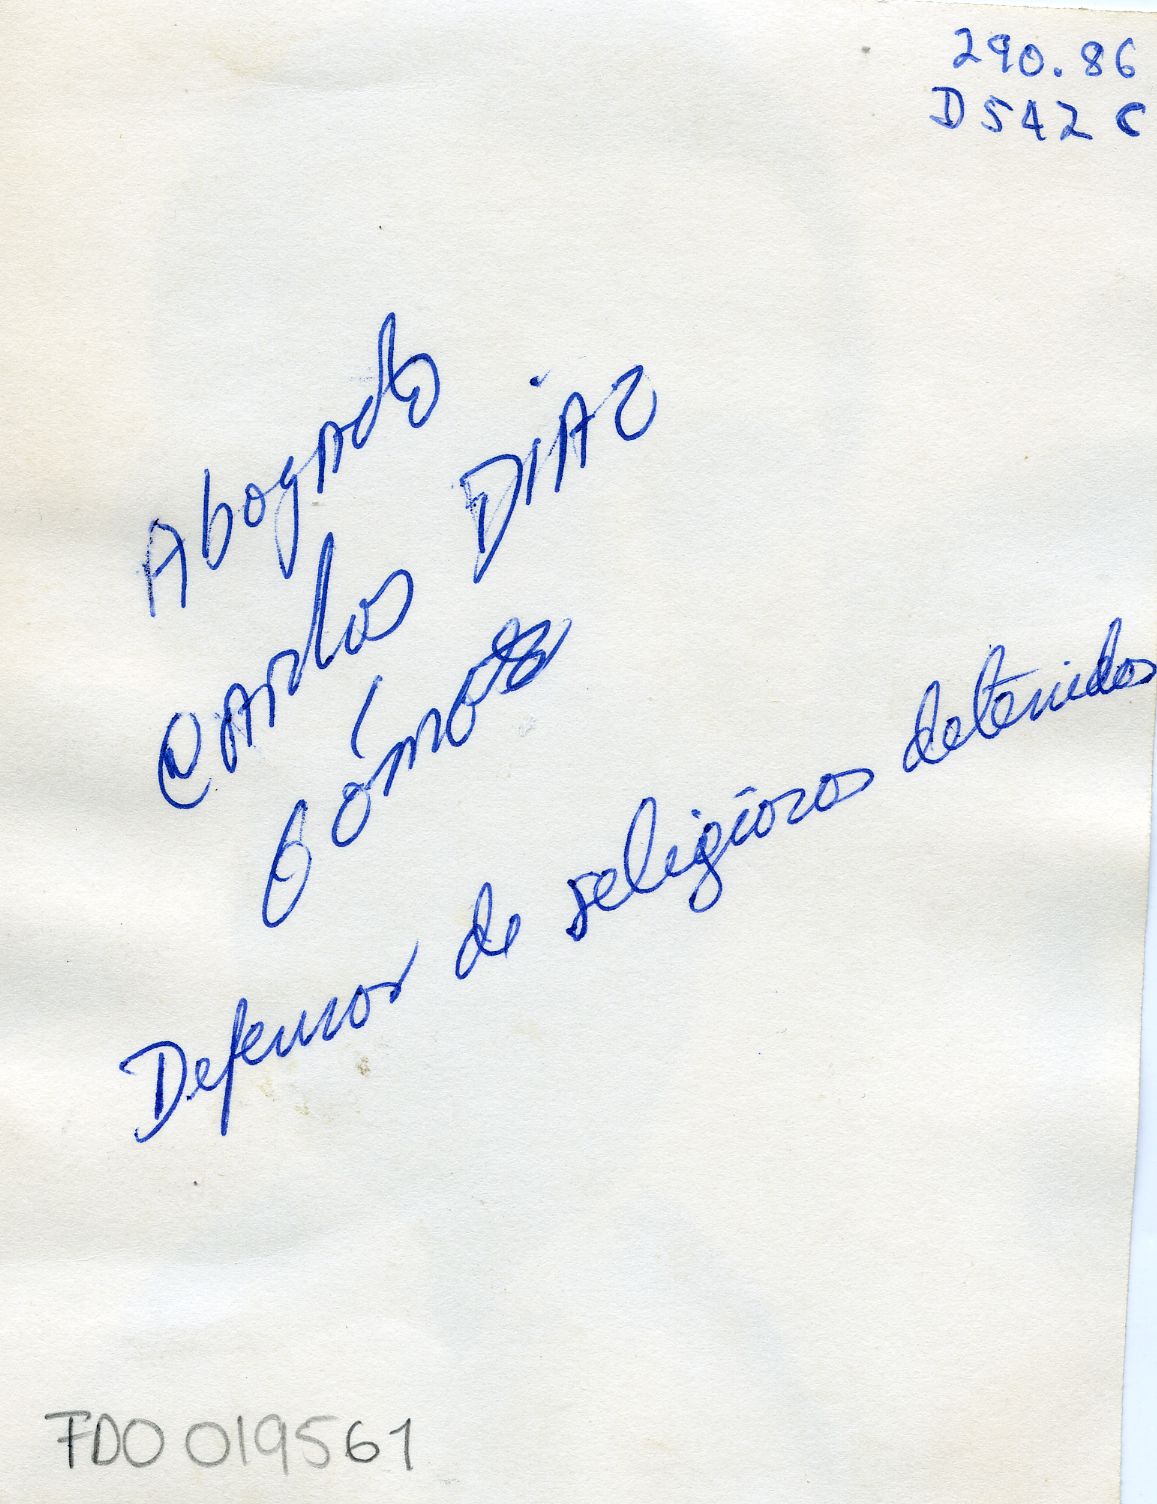 290.86
D542c
Abogado
Carlos Diaz
Gómez
Defensor de religiosos detenidos
FDO 019561